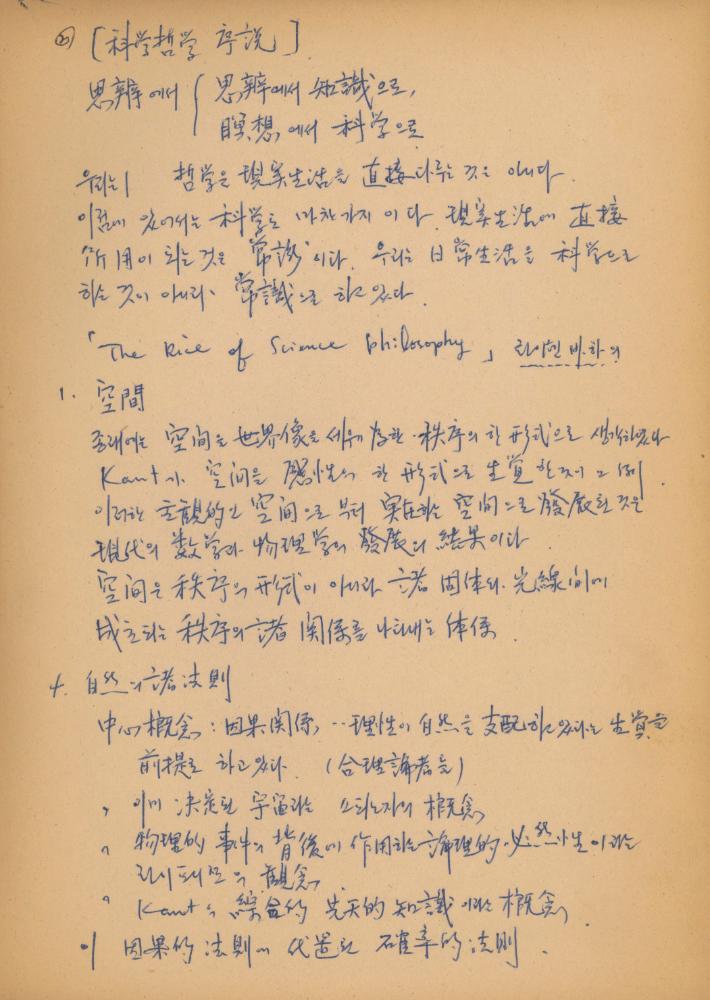 [科学哲学 序説]
思辨에서 { 思辨에서 知識으로,
瞑想에서 科学으로
우리는 哲学은 現実生活을 直接 다루는 것은 아니다.
이점에 있어서는 科学도 마찬가지이다. 現実生活에 直接
作用이 되는 것은 "常識"이다. 우리는 日常生活을 科学으로
하는 것이 아니라 常識으로 하고 있다.
「The Rice of Science philosophy」 라이헨바하의
1. 空間
종래에는 空間을 世界像을 세우기 為한 秩序의 한 形式으로 생각하였다
Kant가 空間을 感性의 한 形式으로 生覚한것이 그 例.
이러한 主観的인 空間으로부터 実在하는 空間으로 發展된 것은
現代의 数学과 物理学의 發展의 結果이다.
空間은 秩序의 形式이 아니라 諸 固体와 光線間에
成立되는 秩序의 諸 関係를 나타내는 体係.
4. 自然의 諸法則
中心概念 : 因果関係, ‥理性이 自然을 支配하고 있다는 生覚을
前提로 하고 있다. (合理論者들)
〃 이미 決定된 宇宙라는 스피노자의 概念
〃 物理的 事件의 背後에 作用하는 論理的 必然性이라는
라이프니쯔의 観念
〃 Kant의 綜合的 先天的 知識이라는 概念
이 因果的 法則에 代置된 確率的 法則.